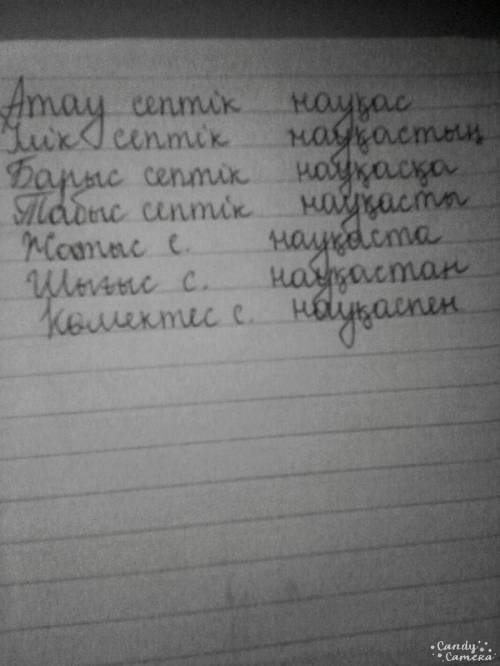 Атау септік науқас
Ілік септік науқастың
Барыс септік науқасқа
Табыс септік науқасты
Жатыс с. науқаста
Шығыс с. науқастан
Көмектес с. науқаспен
Candy Camera